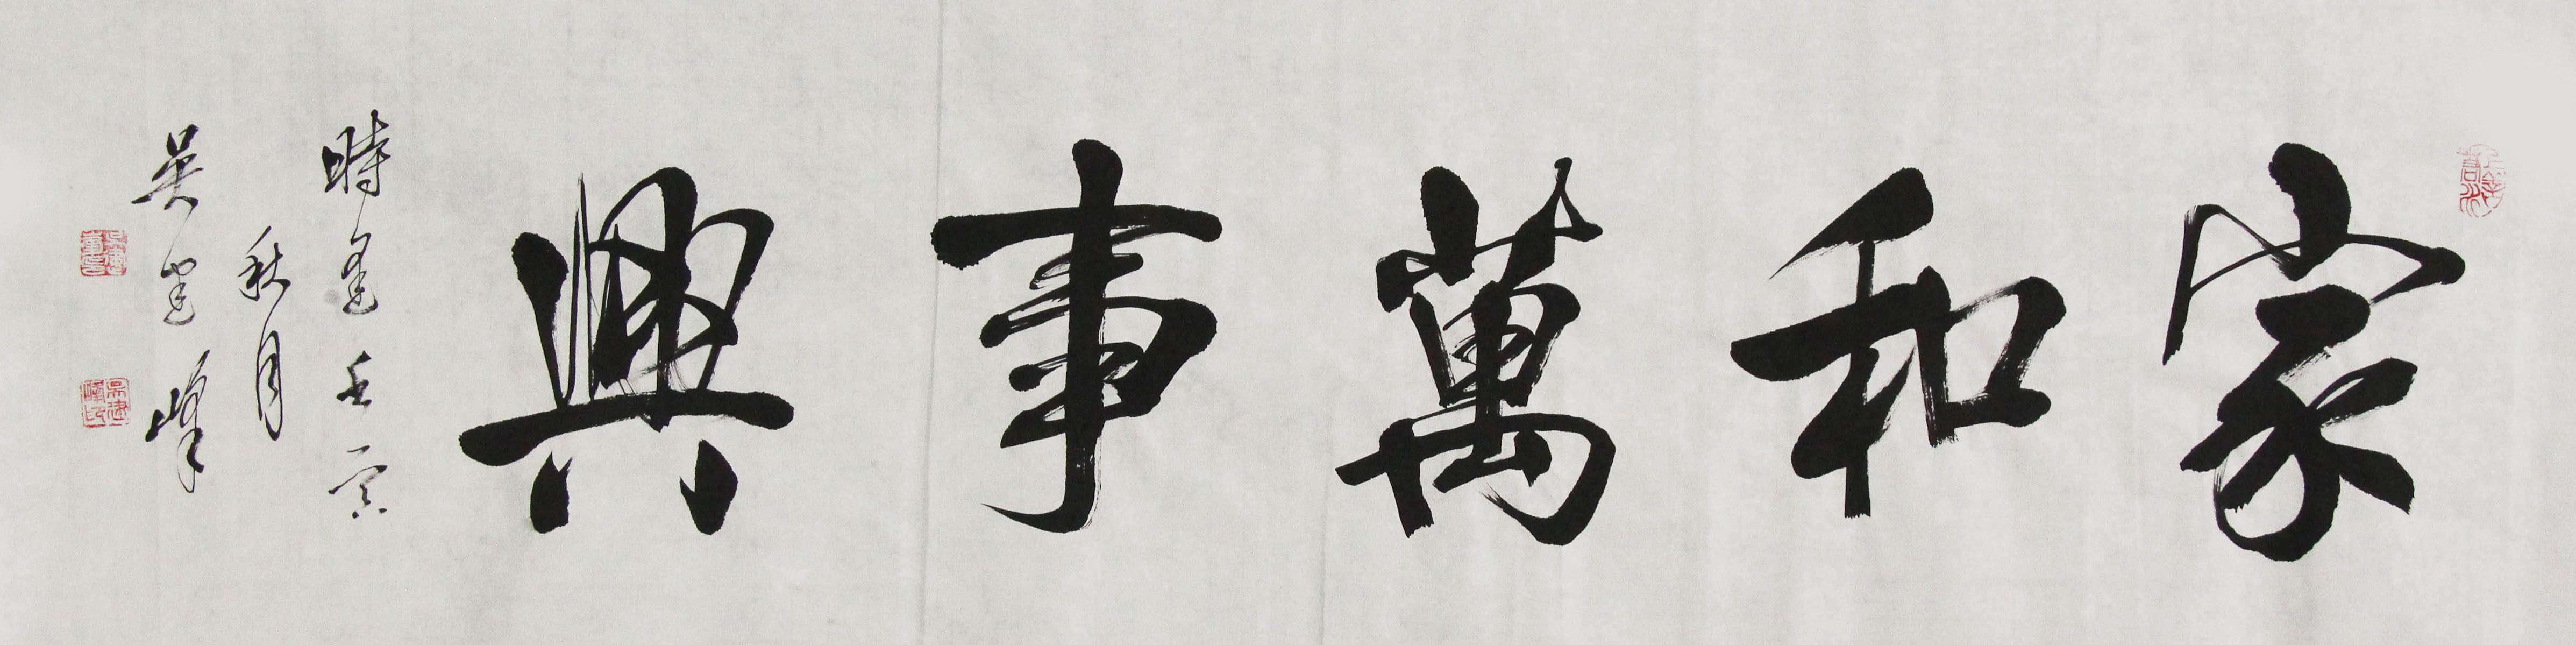 家和萬事興
時在壬寅
秋月
吴建峰